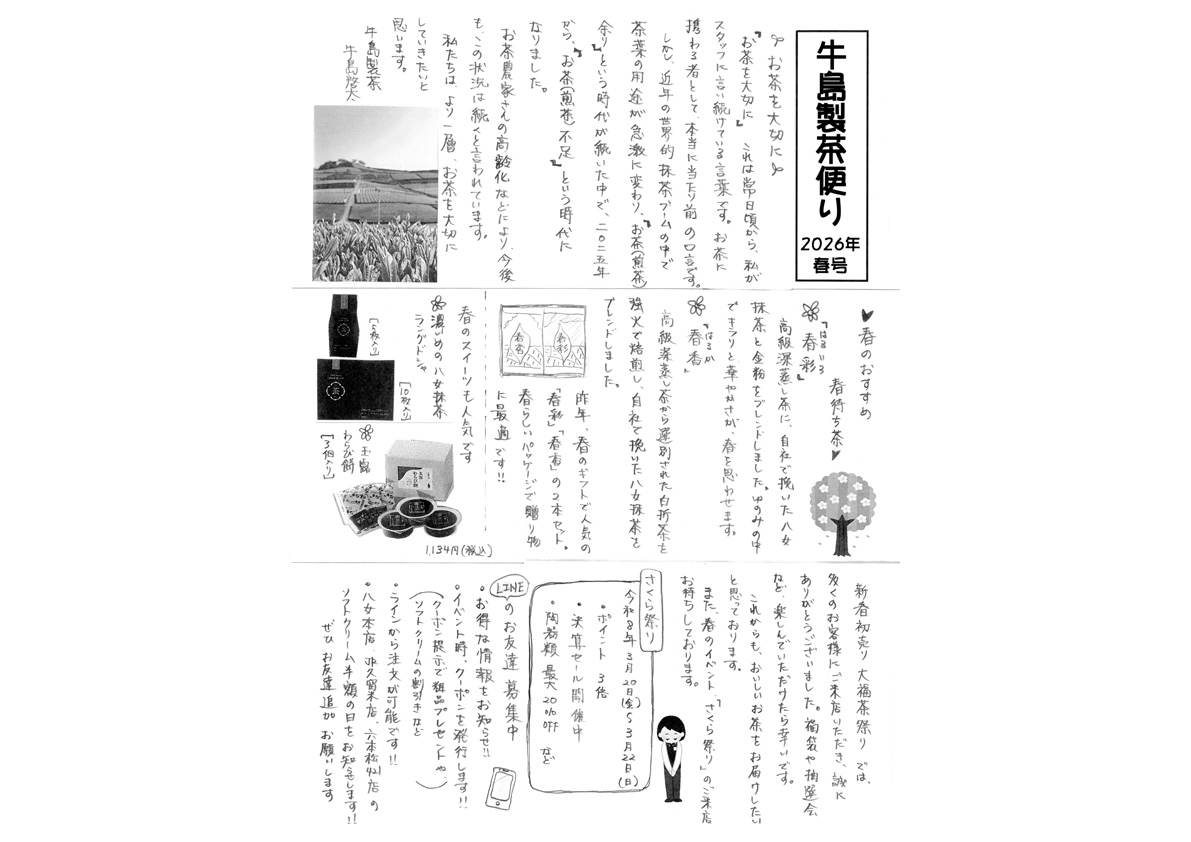 牛島製茶便り
2026年
春号
お茶を大切に
『お茶を大切に』 これは常日頃から、私が
スタッフに言い続けている言葉です。お茶に
携わる者として、本当に当たり前の口言です。
しかし、近年の世界的抹茶ブームの中で
茶葉の用途が急激に変わり、『お茶(煎茶)
余り』という時代が続いた中で、二〇二五年
から、『お茶(煎茶)不足』という時代に
なりました。
お茶農家さんの高齢化などにより、今後
も、この状況は続くと言われています。
私たちは、より一層、お茶を大切に
していきたいと
思います。
牛島製茶
牛島啓太
春のおすすめ
春待ち茶
『はるいろ
春彩』
高級深蒸し茶に、自社で挽いた八女
抹茶と金粉をブレンドしました。ゆのみの中
でキラリと華やかさが、春を思わせます。
『はるか
春香』
高級深蒸し茶から選別された白折茶を
強火で焙煎し、自社で挽いた八女抹茶を
ブレンドしました。
春香
春彩
昨年、春のギフトで人気の
「春彩」「春香」の2本セット。
春らしいパッケージで贈り物
に最適です!!
春のスイーツも人気です
濃いめの八女抹茶
ラングドシャ
[5枚入り]
[10枚入り]
茶
玉露
わらび餅
[3個入り]
1,134円(税込)
新春初売り大福茶祭りでは、
多くのお客様にご来店いただき、誠に
ありがとうございました。福袋や抽選会
など、楽しんでいただけたら幸いです。
これからも、おいしいお茶をお届けしたい
と思っております。
また、春のイベント、「さくら祭り」のご来店
お待ちしております。
さくら祭り
令和8年3月20日(金)〜3月22日(日)
・ポイント 3倍
・決算セール開催中
・陶器類 最大20%OFF など
LINEのお友達募集中
・お得な情報をお知らせ!!
・イベント時、クーポンを発行します!!
(クーポン提示で粗品プレゼントや、
ソフトクリームの割引きなど)
・ラインから注文が可能です!!
・八女本店、JR久留米店、六本松421店の
ソフトクリーム半額の日をお知らせします!!
ぜひお友達追加お願いします